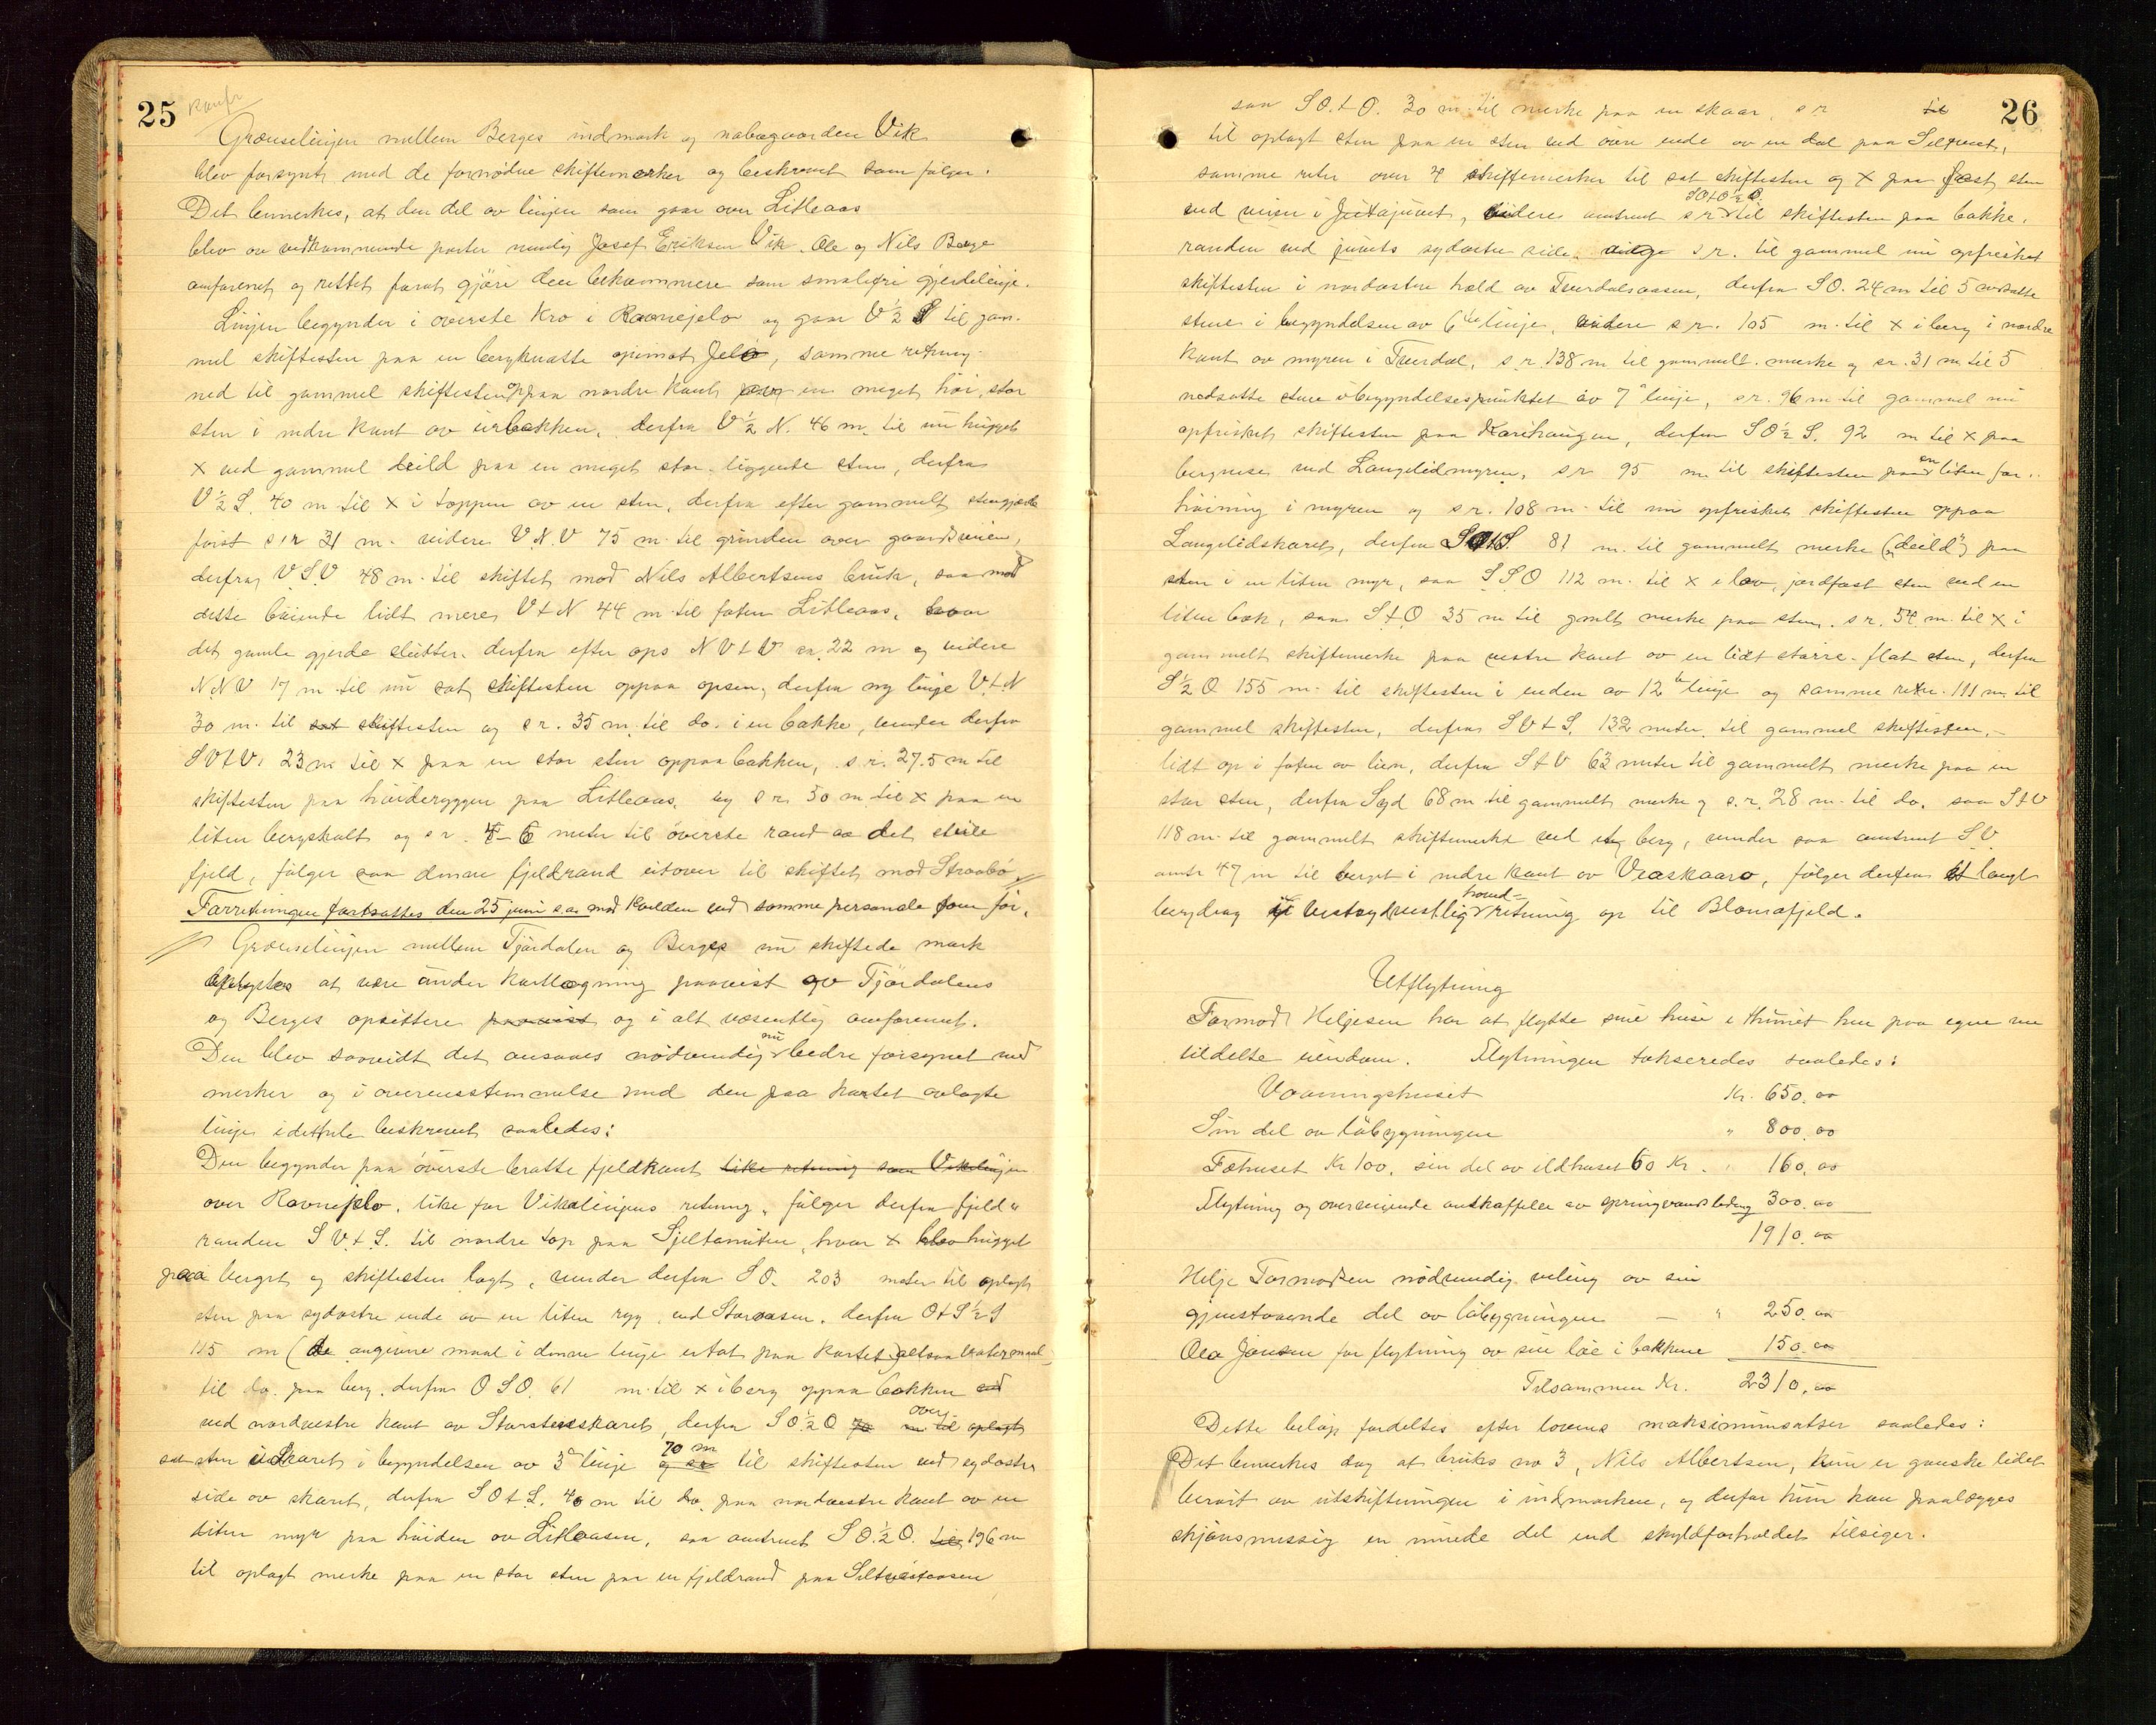 25
Grænselinjen mellem Berges indmark og nabogaarden Vik
blev forsynt med de fornødne skiftemerker og beskrevet som følger.
Det bemerkes, at den del av linjen som gaar over Litleaas
blev av vedkommende parter nemlig Josef Eriksen Vik. Ole og Nils Berge
omforenet og rettet forat gjøre den bekvemmere som smalefri gjerdelinje.
Linjen begynder i øverste kro i Ravnejelo og gaar V ½ S til gam-
mel skiftesten paa en bergknatte opimot Jelo, samme retning
ned til gammel skiftesten oppaa nordre kant en meget høi, stor
sten i nedre kant av urbakken. derfra V ½ N. 46 m. til nu hugget
x ved gammel deild paa en meget stor liggende sten, derfra
V ½ S. 40 m til x i toppen av en sten, derfra efter gammelt stengjerde
først s r 31 m. videre V.N.V 75 m til grinden over gaardsveien,
derfra V S.V 48 m. til skiftet mod Nils Albertsens bruk, saa mod
dette bøiende lidt mere V t N 44 m til foten Litleaas, hvor
det gamle gjerde slutter. derfra efter ops N V t V ca. 22 m og videre
N.N.V 17 m til nu sat skiftesten oppaa opsen, derfra ny linje V t N
30 m. til sat skiftesten og s r. 35 m til do. i en bakke, vender derfra
S V t V. 23 m til x paa en stor sten oppaa bakken, s. r. 27.5 m til
skiftesten paa høideryggen paa Litleaas, og s r. 50 m til x paa en
liten bergskalt og s r. 4-6 meter til øverste rand av det steile
fjeld, følger saa denne fjeldrand utover til skiftet mod Straabø.
Forretningen fortsattes den 25 juni s.a. med kvelden ved samme personale som før.
Grænselinjen mellem Tjørdalen og Berges nu skiftede mark
oplystes at være under kartlægning paavist av Tjørdalens
og Berges opsittere paavist og i alt væsentlig omforenet.
nu
Den blev saavidt det ansaaes nødvendig bedre forsynet med
merker og i overensstemmelse med den paa kartet avlagte
linje i detalje beskrevet saaledes:
Den begynder paa øverste bratte fjeldkant like retning som Vikelinjen
over Ravnejelo, like for Vikalinjens retning, følger derfra fjeld-
randen S V. t S. til nordre top paa Sjeltanuten, hvor x blev hugget
paa berget og skiftesten lagt, vender derfra S O. 203 meter til oplagt
sten paa sydøstre ende av en liten ryg ved Storaasen. derfra O t S ½ S
115 m (de angivne maal i denne linje er tat paa kartet altsaa vatermaal
til do. paa berg, derfra O S O. 61 m. til x i berg oppaa bakken
ved nordvestre kant av Storsteinskaret, derfra S O ½ O 70 m til oplagt
over
sat sten i skaret i begyndelsen av 3. linje og sr til skiftesten ved sydøstre
70 m
side av skaret, derfra S O t S. 40 m til do. paa nordvestre kant av en
liten myr paa høiden av Litleaasen, saa omtrent S O. ½ O. til 196 m
til oplagt merke paa en stor sten paa en fjeldrand paa
26
saa S O. t O. 30 m. til merke paa en skaar, s r til
til oplagt sten paa en sten ved øvre ende av en dal paa
samme retn over 4 skiftemerker til sat skiftesten og x paa fast sten
S O t O ½ O.
ved veien i Jutajuvet, videre omtrent s r til skiftesten paa bakke-
randen ved juvets sydøstre side. s r. til gammel nu opfrisket
skiftesten i nordøstre hæld av Tverdalsaasen, derfra S O. 24 m til 5 nedsatte
stene i begyndelsen av 6te linje, videre s r. 105 m. til x i berg i nordre
kant av myren i Tverdal, s r. 138 m til gammelt merke og sr. 31 m til 5
nedsatte stene i begyndelsespunktet av 7. linje, s r. 96 m til gammel nu
opfrisket skiftesten paa Karihaugen, derfra S O ½ S. 92 m til x paa
bergnese ved Langelidmyren, s r 95 m til skiftesten paa en liten for-
høining i myren og s r. 108 m til nu opfrisket skiftesten oppaa
Langelidskaret, derfra S O t S. 81 m. til gammelt merke ("deild") paa
sten i en liten myr, saa S S O 112 m. til x i lav, jordfast sten ved en
liten bæk, saa S t O 35 m til gmlt merke paa sten. s r. 54 m. til x i
gammelt skiftemerke paa vestre kant av en lidt større flat sten, derfra
S ½ O 155 m. til skiftesten i enden av 12te linje og samme retn. 111 m. til
gammel skiftesten, derfra S V t S. 132 meter til gammel skiftesten,
lidt op i foten av lien, derfra S t V 63 meter til gammelt merke paa en
stor sten, derfra Syd 68 m til gammelt merke og s.r. 28 m. til do. saa S t V
118 m. til gammelt skiftemerke ved berg, vender saa omtrent S V.
omtr 47 m til berget i nedre kant av Vraskaaro, følger derfra et langt
bergdrag i vestsydvestlig hoved-retning op til Blomafjeld.
Utflytning
Tormod Heljesen har at flytte sine huse i thunet hen paa egen nu
tildelte eiendom. Flytningen takseredes saaledes:
Vaaningshuset Kr. 650.00
Sin del av løbygningen " 800.00
Fæhuset Kr 100, sin del av ildhuset 60 Kr. " 160.00
Flytning og overveiende anskaffelse av springvandsledning 300.00
1910.00
Helje Tormodsen nødvendig veling av sin
gjenstaaende del av løbygningen — " 250.00
Ola Jonsen for flytning av sin løe i bakkene 150.00
Tilsammen Kr. 2310.00
Dette beløp fordeltes efter lovens maksimumsatser saaledes:
Det bemerkes dog at bruks no 3, Nils Albertsen, kun er ganske lidet
berørt av utskiftningen i indmarken, og derfor kun kan paalægges
skjønsmessig en mindre del end skyldforholdet tilsiger.